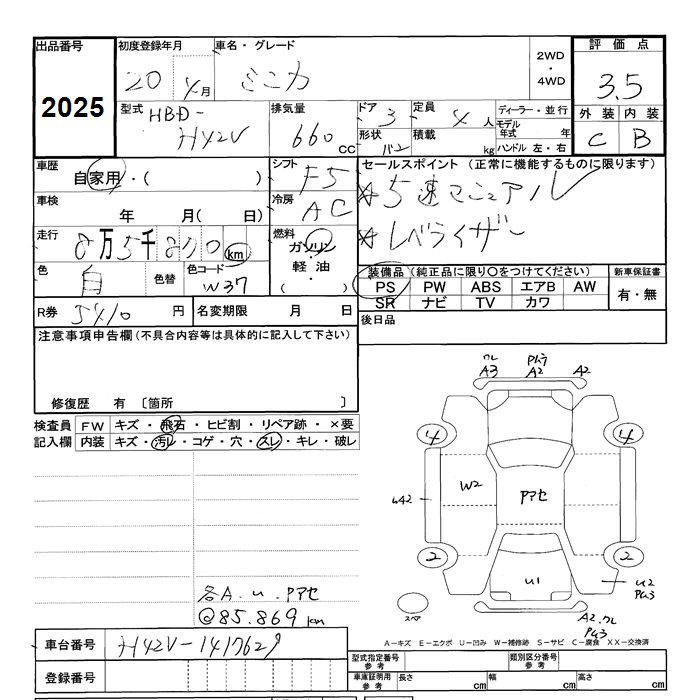 出品番号
2025
初度登録年月
20 年 4月
車名・グレード
ミニカ
2WD
・
4WD
評価点
3.5
外装 内装
C B
型式
HBD-
H42V
排気量
660 cc
ドア 3
形状 バン
定員 4 人
積載 kg
ディーラー・並行
モデル年式 年
ハンドル 左・右
車歴
自家用・( )
シフト F5
車検
年 月( 日)
冷房 AC
走行
8万5千800 km
燃料
ガソリン
軽油
( )
色
白
色替
色コード
W37
R券 5410 円
名変期限 月 日
セールスポイント (正常に機能するものに限ります)
☆5速マニュアル
☆レベライザー
装備品 (純正品に限り○をつけてください)
PS PW ABS エアB AW
SR ナビ TV カワ
新車保証書
有・無
後日品
注意事項申告欄(不具合内容等は具体的に記入して下さい)
修復歴 有 〔箇所 〕
検査員記入欄
FW キズ・飛石・ヒビ割・リペア跡・×要
内装 キズ・汚レ・コゲ・穴・スレ・キレ・破レ
クレ
A3
A2
A2
4
4
W2
Pアセ
2
2
U1
U2
A2.クレ
スペア
各A.u.Pアセ
@85.869km
A-キズ E-エクボ U-凹み W-補修跡 S-サビ C-腐食 XX-交換済
車台番号
H42V-1417629
登録番号
型式指定番号
参考
類別区分番号
参考
車庫証明用
参考
長さ cm
幅 cm
高さ cm